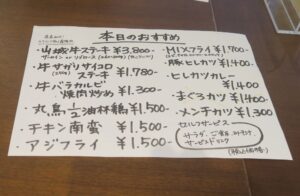 本日のおすすめ
・山城牛ステーキ ¥3,800-
・牛サガリサイコロステーキ ¥1,780-
・牛バラカルビ焼肉炒め ¥1,300-
・丸鳥½油杯鶏 ¥1,500-
・チキン南蛮 ¥1,500-
・アジフライ ¥1,500-
・MIXフライ ¥1,700-
・豚ヒレカツ ¥1,400
・ヒレカツカレー ¥1,400
・まぐろカツ ¥1,400
・メンチカツ ¥1,300
セルフサービス
サラダ、ご飯
サービスドリンク